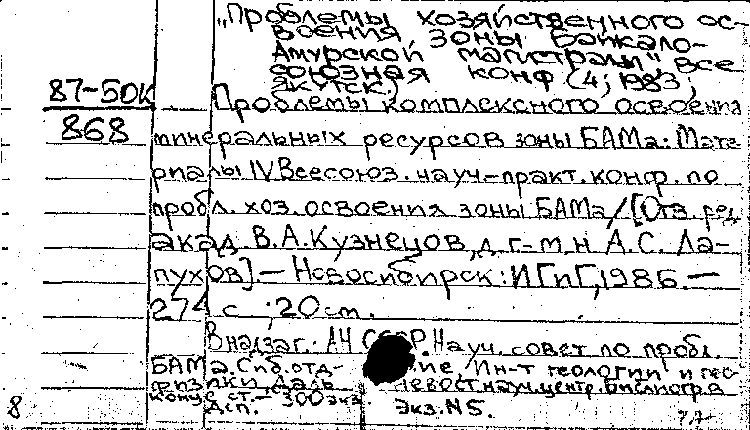 „Проблемы хозяйственного ос-
воения зоны Байкало-
Амурской магистрали" Все
союзная конф (4; 1983;
Якутск.)
87-50К
868
Проблемы комплексного освоения
минеральных ресурсов зоны БАМа: Мате
риалы IV Всесоюз. науч-практ. конф. по
пробл. хоз. освоения зоны БАМа/[Отв. ред
акад. В.А.Кузнецов, д. г-м.н А.С. Ла-
пухов].— Новосибирск: ИГиГ, 1986.—
274 с.; 20см.
В надзаг.: АН СССР. Науч. совет по пробл.
БАМа. Сиб. отд-ние, Ин-т геологии и гео-
физики, Дальневост. науч. центр. Библиогр в
конце ст.— 300 экз
Дсп.
Экз. N5.
8